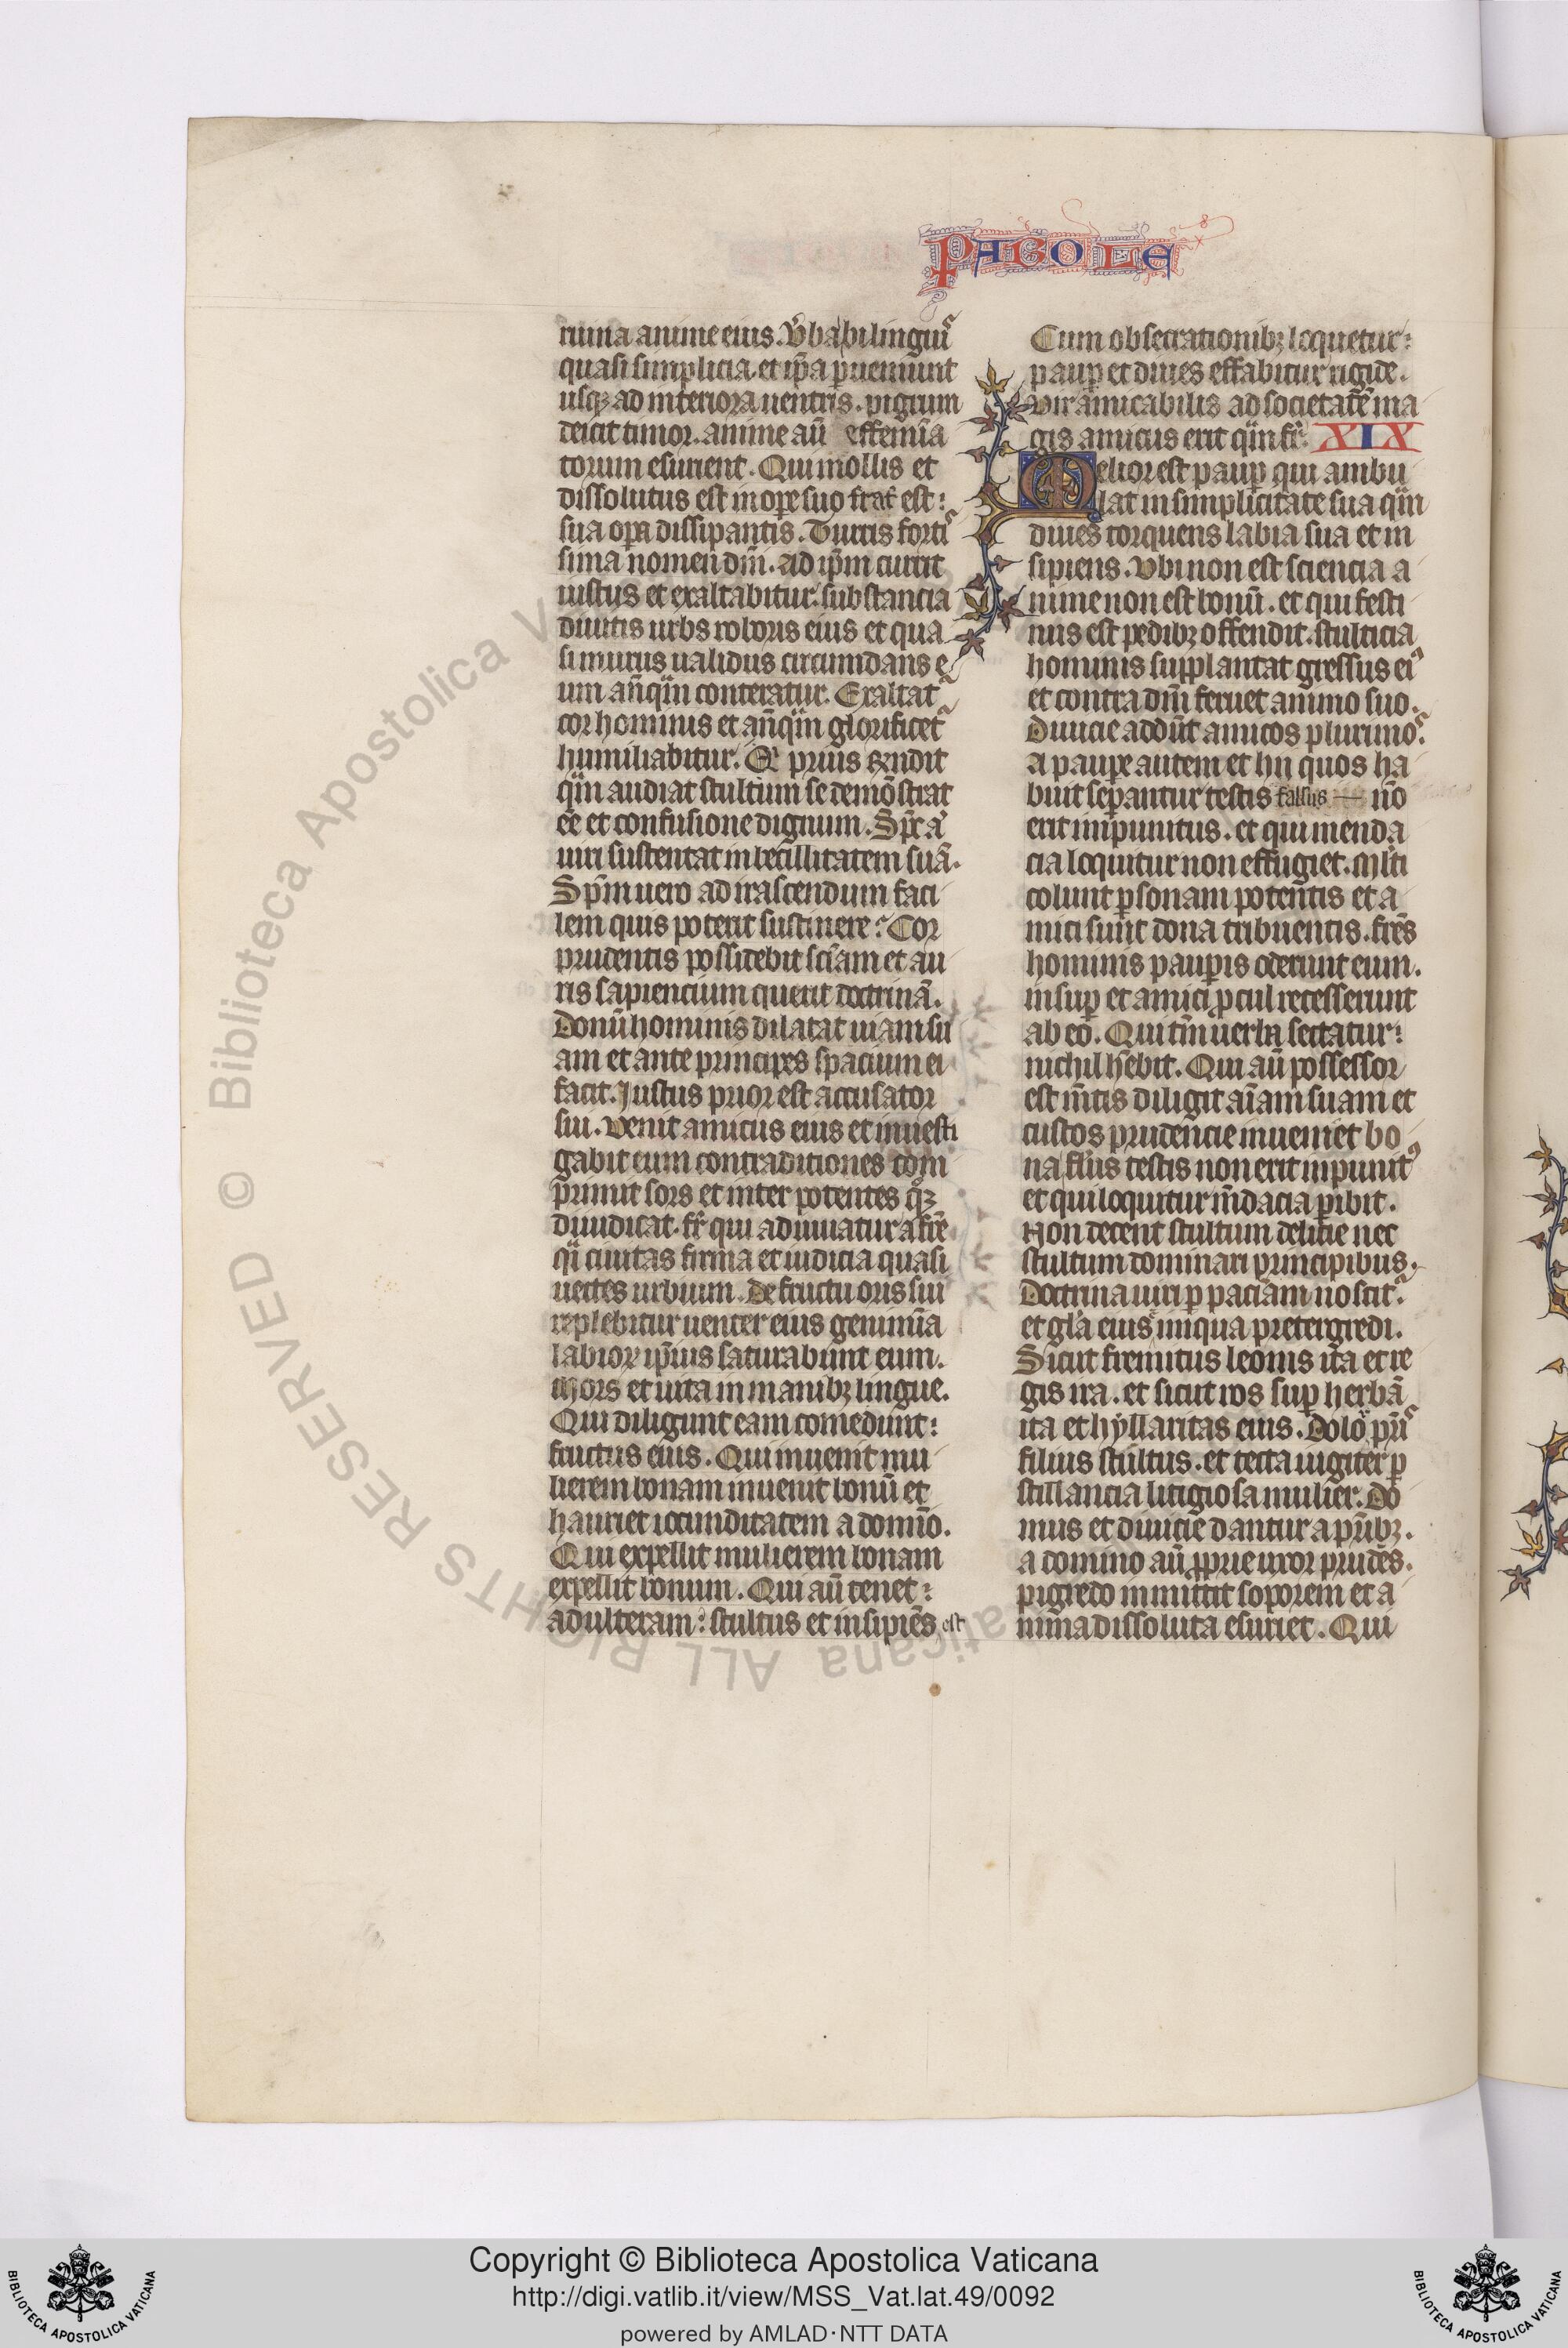 PABOLE
ruina anime eius. Vba bilinguis
quasi simplicia. et ip̄a ꝑueniunt
usqꝫ ad interiora uentris. pigrum
deicit timor. anime aū effemīa
torum esurient. Qui mollis et
dissolutus est in oꝑe suo frat̄ est:
sua oꝑa dissipantis. Turris forti
sima nomen dm̄i. ad ip̄m currit
iustus et exaltabitur. substancia
diuitis urbs roboris eius et qua
si murus ualidus circumdans e
um an̄qm̄ conteratur. Exaltat᷑
cor hominis et an̄qm̄ glorificet᷑
humiliabitur. Qi prius rn̄dit
qm̄ audiat stultum se demōstrat
eē et confusione dignum. Sp̄c
uiri sustentat inbecillitatem suā.
Sp̄m uero ad irascendum faci
lem quis poterit sustinere? Cor
prudentis possidebit sciam et au
ris sapiencium querit doctrinā.
Donū hominis dilatat uiam su
am et ante principes spacium ei
facit. Iustus prior est accusator
sui. venit amicus eius et inuesti
gabit eum contradictiones com
primit sors et inter potentes qꝫ
diuidicat. fr̄ qui adiuuatur a fr̄e
qi ciuitas firma et iudicia quasi
uectes urbium. De fructu oris sui
replebitur uenter eius genimīa
labioꝝ ip̄ius saturabunt eum.
Mors et uita in manibꝫ lingue.
Qui diligunt eam comedunt:
fructus eius. Qui inuenit mu
lierem bonam inuenit bonū et
hauriet iocunditatem a domīo.
Qui expellit mulierem bonam
expellit bonum. Qui aū tenet:
adulteram: stultus et insipiēs est
Cum obsecrationibꝫ loquetur:
pauꝑ et diues effabitur rigide.
Vir amicabilis ad societatē ma
gis amicus erit qm̄ fr̄. XIX
Melior est pauꝑ qui ambu
lat in simplicitate sua qm̄
diues torquens labia sua et in
sipiens. Vbi non est sciencia a
nime non est bonū. et qui festi
nus est pedibꝫ offendit. stulticia
hominis supplantat gressus ei᷒
et contra dm̄ feruet animo suo.
Diuicie addūt amicos plurimos.
A pauꝑe autem et hii quos ha
buit seꝑantur testis falsus — nō
erit impunitus. et qui menda
cia loquitur non effugiet. Ml̄ti
colunt ꝑsonam potentis et a
mici sunt dona tribuentis. fr̄es
hominis pauꝑis oderunt eum.
insuꝑ et amici ꝓcul recesserunt
ab eo. Qui tm̄ uerba sectatur:
nichil hēbit. Qui aū possessor
est m̄tis diligit aīam suam et
custos prudencie inueniet bo
na flūs testis non erit inpunit᷒
et qui loquitur m̄dacia ꝑibit.
Non decent stultum delicie nec
stultum dominari principibus.
Doctrina uiri ꝑ paciam noscit᷑.
et gla eius iniqua pretergredi.
Sicut fremitus leonis ita et re
gis ira. et sicut ros suꝑ herbā
ita et hyllaritas eius. Dolor pr̄is
filius stultus. et tecta iugiter ꝑ
stillancia litigiosa mulier. Do
mus et diuicie dantur a pn̄bꝫ.
a domino aū ꝓprie uxor prudēs.
pigredo inmittit soporem et a
nima dissoluta esuriet. Qui
Copyright © Biblioteca Apostolica Vaticana
http://digi.vatlib.it/view/MSS_Vat.lat.49/0092
powered by AMLAD·NTT DATA
© Biblioteca Apostolica Vaticana ALL RIGHTS RESERVED
BIBLIOTECA APOSTOLICA VATICANA
BIBLIOTECA APOSTOLICA VATICANA